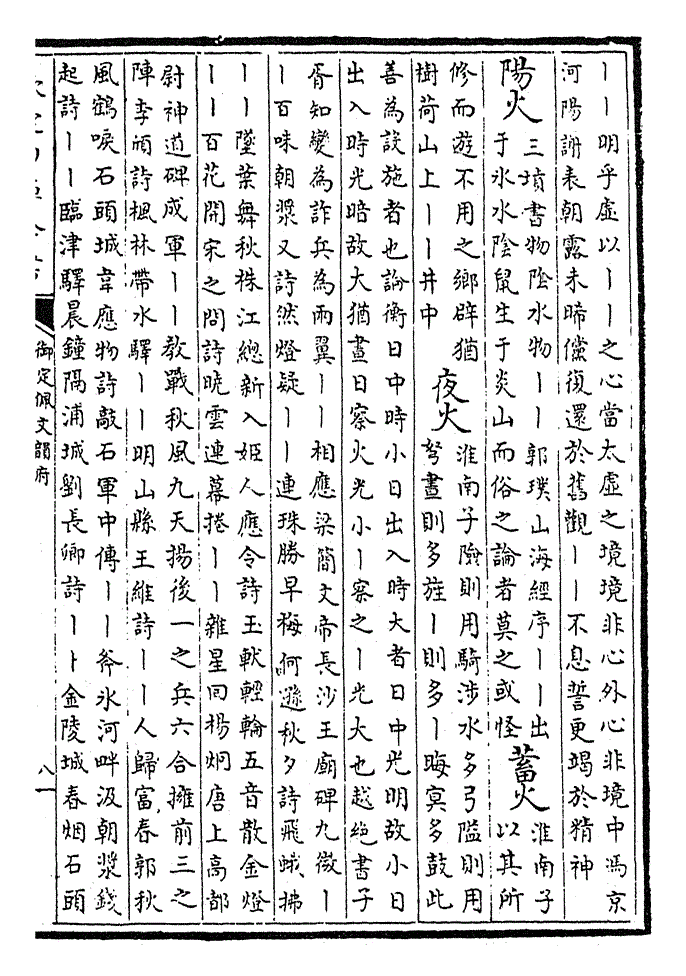 丨丨明乎虛以丨丨之心當太虛之境境非心外心非境中馮京
河陽謝表朝露未晞儻復還於舊觀丨丨不息誓更竭於精神
陽火 三墳書物陰水物丨丨郭璞山海經序丨丨出
于氷水陰鼠生于炎山而俗之論者莫之或怪
蓄火 淮南子
以其所
修而遊不用之鄉辟猶
樹荷山上丨丨井中
夜火 淮南子險則用騎涉水多弓隘則用
弩晝則多旌丨則多丨晦冥多鼓此
善為設施者也論衡日中時小日出入時大者日中光明故小日
出入時光暗故大猶晝日察火光小丨察之丨光大也越絕書子
胥知變為詐兵為兩翼丨丨相應梁簡文帝長沙王廟碑九微丨
丨百味朝漿又詩然燈疑丨丨連珠勝早梅何遜秋夕詩飛蛾拂
丨丨墜葉舞秋株江總新入姬人應令詩玉軑輕輪五音散金燈
丨丨百花開宋之問詩曉雲連幕捲丨丨雜星回楊炯唐上高都
尉神道碑成軍丨丨教戰秋風九天揚後一之兵六合擁前三之
陣李頎詩楓林帶水驛丨丨明山縣王維詩丨丨人歸富春郭秋
風鶴唳石頭城韋應物詩敲石軍中傳丨丨斧氷河畔汲朝漿錢
起詩丨丨臨津驛晨鐘隔浦城劉長卿詩丨卜金陵城春烟石頭
御定佩文韻府
八一